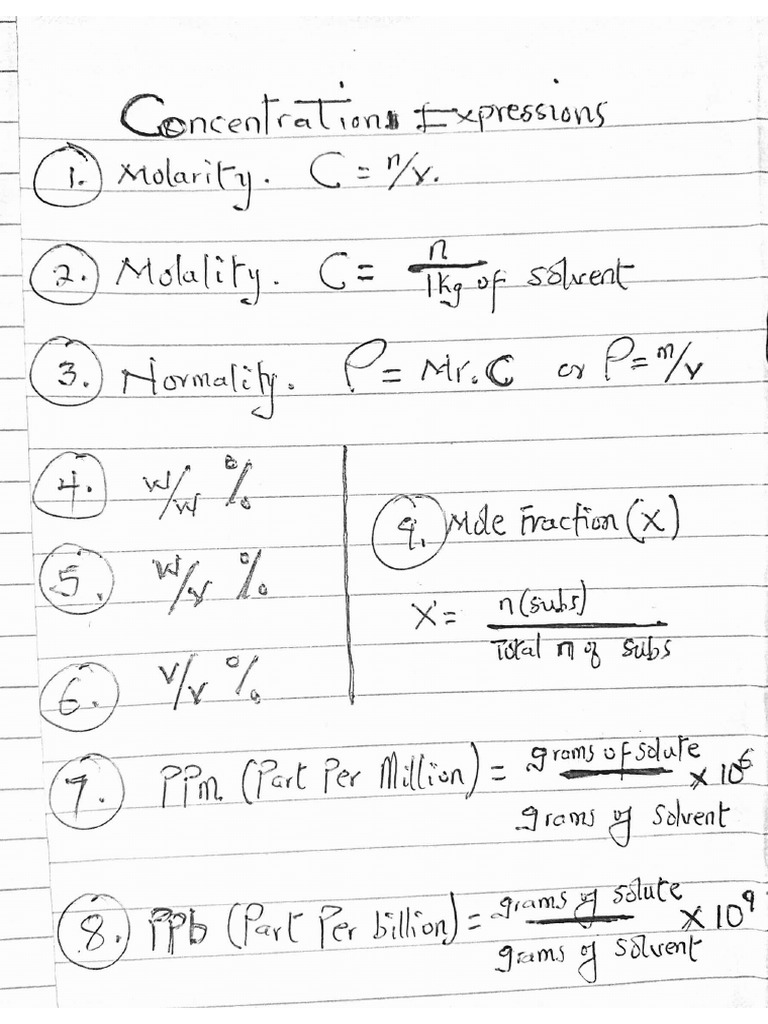 Concentrations Expressions
1. Molarity. C = n/v.
2. Molality. C = n / 1kg of solvent
3. Normality. ρ = Mr.C or ρ = m/v
4. w/w %
5. w/v %
6. v/v %
9. Mole Fraction (X)
X = n(subs) / Total n of subs
7. PPm (Part Per Million) = grams of solute / grams of solvent × 10⁶
8. PPb (Part Per billion) = grams of solute / grams of solvent × 10⁹